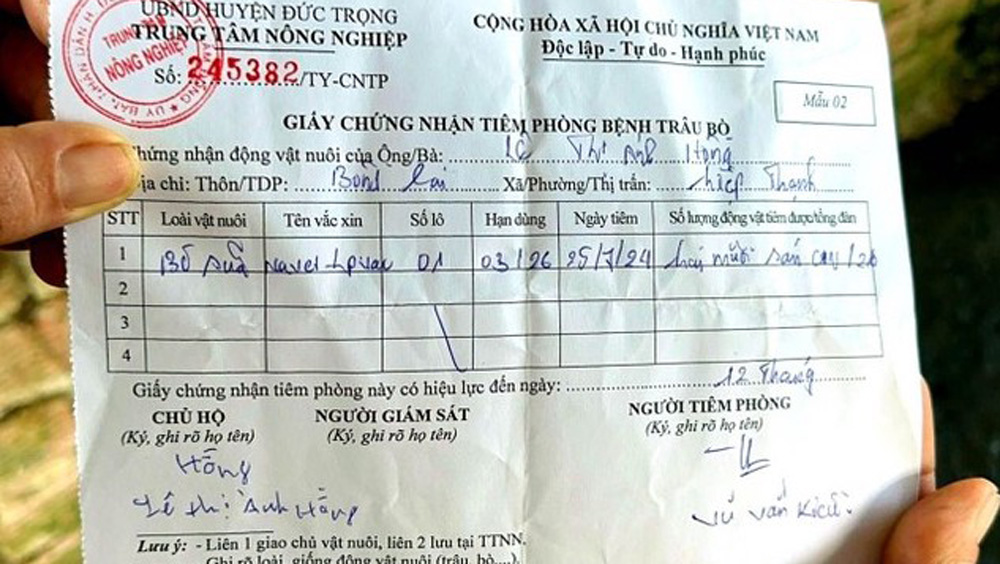 UBND HUYỆN ĐỨC TRỌNG
TRUNG TÂM NÔNG NGHIỆP
Số: 245382/TY-CNTP
CỘNG HÒA XÃ HỘI CHỦ NGHĨA VIỆT NAM
Độc lập - Tự do - Hạnh phúc
TRUNG TÂM
NÔNG NGHIỆP
Mẫu 02
GIẤY CHỨNG NHẬN TIÊM PHÒNG BỆNH TRÂU BÒ
Chứng nhận động vật nuôi của Ông/Bà: Lê Thị Ánh Hồng
Địa chỉ: Thôn/TDP: Xã/Phường/Thị trấn: Hiệp Thạnh
STT Loài vật nuôi Tên vắc xin Số lô Hạn dùng Ngày tiêm Số lượng động vật tiêm được/tổng đàn
1 Bò sữa Navet-Lpvac 01 03/26 25/7/24 hai mươi sáu con/26
2
3
4
Giấy chứng nhận tiêm phòng này có hiệu lực đến ngày: 12 Tháng
CHỦ HỘ NGƯỜI GIÁM SÁT NGƯỜI TIÊM PHÒNG
(Ký, ghi rõ họ tên) (Ký, ghi rõ họ tên) (Ký, ghi rõ họ tên)
Hồng
Lê Thị Ánh Hồng Vũ Văn
Lưu ý: - Liên 1 giao chủ vật nuôi, liên 2 lưu tại TTNN.
Ghi rõ loài, giống động vật nuôi (trâu, bò....)